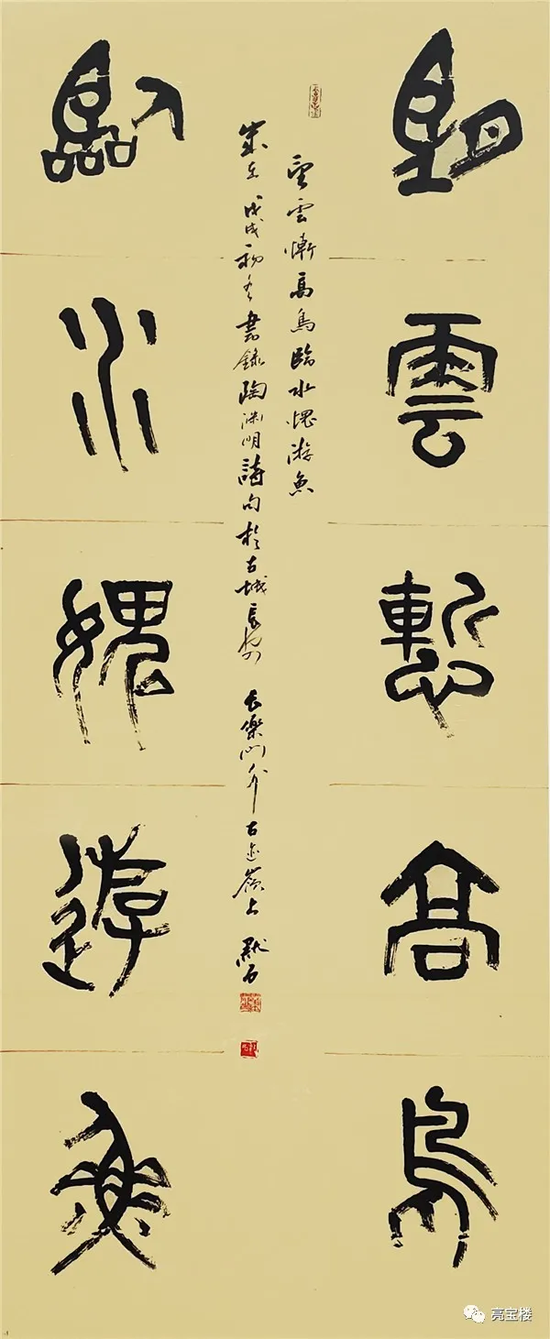 望雲慙高鳥
臨水愧遊魚
望雲慚高鳥臨水愧游魚
歲在戊戌初冬書錄陶渊明詩句於古城長安 長樂門外古上 默石
亮宝楼